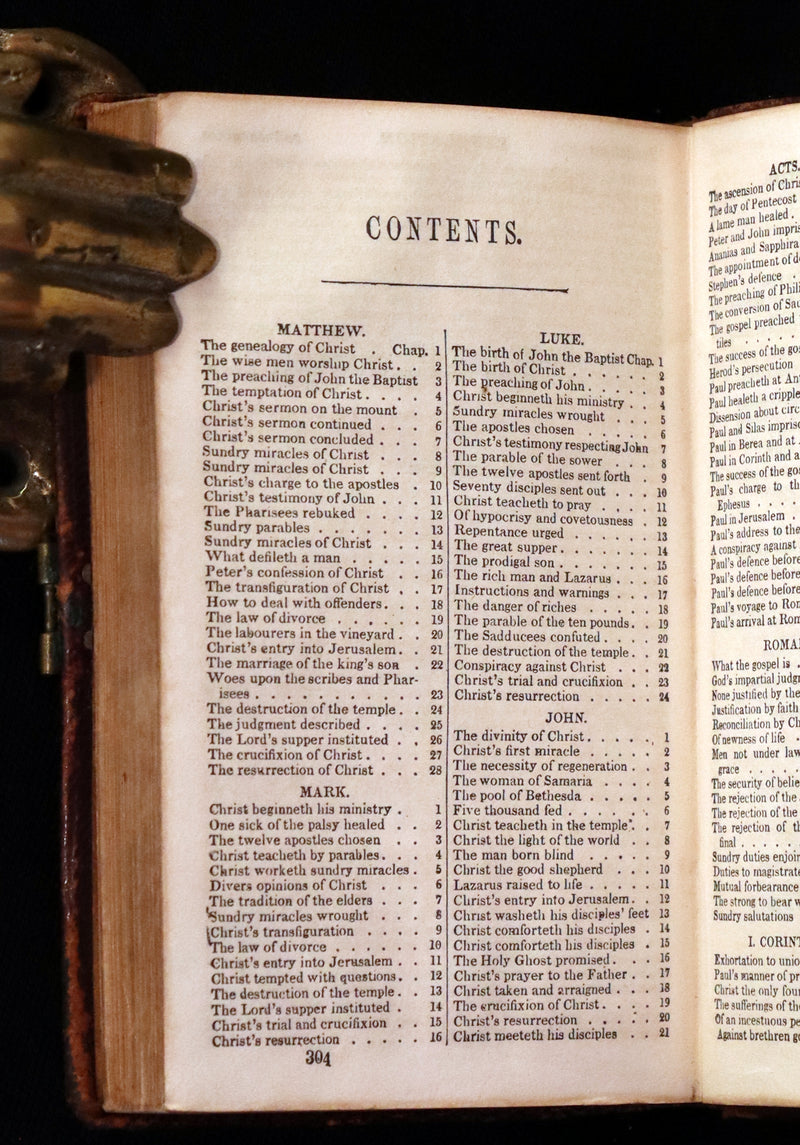 CONTENTS.
MATTHEW.
The genealogy of Christ . Chap. 1
The wise men worship Christ . . 2
The preaching of John the Baptist 3
The temptation of Christ . . . . 4
Christ's sermon on the mount . 5
Christ's sermon continued . . . 6
Christ's sermon concluded . . . 7
Sundry miracles of Christ . . . 8
Sundry miracles of Christ . . . 9
Christ's charge to the apostles . 10
Christ's testimony of John . . . 11
The Pharisees rebuked . . . . 12
Sundry parables . . . . . . . 13
Sundry miracles of Christ . . . 14
What defileth a man . . . . . 15
Peter's confession of Christ . . 16
The transfiguration of Christ . . 17
How to deal with offenders . . . 18
The law of divorce . . . . . . 19
The labourers in the vineyard . . 20
Christ's entry into Jerusalem . . 21
The marriage of the king's son . 22
Woes upon the scribes and Phar-
isees . . . . . . . . . . . 23
The destruction of the temple . . 24
The judgment described . . . . 25
The Lord's supper instituted . . 26
The crucifixion of Christ . . . . 27
The resurrection of Christ . . . 28
MARK.
Christ beginneth his ministry . . 1
One sick of the palsy healed . . 2
The twelve apostles chosen . . 3
Christ teacheth by parables . . . 4
Christ worketh sundry miracles . 5
Divers opinions of Christ . . . 6
The tradition of the elders . . . 7
Sundry miracles wrought . . . 8
Christ's transfiguration . . . . 9
The law of divorce . . . . . . 10
Christ's entry into Jerusalem . . 11
Christ tempted with questions . . 12
The destruction of the temple . . 13
The Lord's supper instituted . 14
Christ's trial and crucifixion . . 15
Christ's resurrection . . . . . 16
304
LUKE.
The birth of John the Baptist Chap. 1
The birth of Christ . . . . . . 2
The preaching of John . . . . . 3
Christ beginneth his ministry . . 4
Sundry miracles wrought . . . 5
The apostles chosen . . . . . 6
Christ's testimony respecting John 7
The parable of the sower . . . 8
The twelve apostles sent forth . 9
Seventy disciples sent out . . . 10
Christ teacheth to pray . . . . 11
Of hypocrisy and covetousness . 12
Repentance urged . . . . . . 13
The great supper . . . . . . . 14
The prodigal son . . . . . . . 15
The rich man and Lazarus . . . 16
Instructions and warnings . . . 17
The danger of riches . . . . . 18
The parable of the ten pounds . . 19
The Sadducees confuted . . . . 20
The destruction of the temple . . 21
Conspiracy against Christ . . . 22
Christ's trial and crucifixion . . 23
Christ's resurrection . . . . . 24
JOHN.
The divinity of Christ . . . . . 1
Christ's first miracle . . . . . 2
The necessity of regeneration . . 3
The woman of Samaria . . . . 4
The pool of Bethesda . . . . . 5
Five thousand fed . . . . . . 6
Christ teacheth in the temple . . 7
Christ the light of the world . . 8
The man born blind . . . . . 9
Christ the good shepherd . . . 10
Lazarus raised to life . . . . . 11
Christ's entry into Jerusalem . . 12
Christ washeth his disciples' feet 13
Christ comforteth his disciples . 14
Christ comforteth his disciples . 15
The Holy Ghost promised . . . 16
Christ's prayer to the Father . . 17
Christ taken and arraigned . . . 18
The crucifixion of Christ . . . . 19
Christ's resurrection . . . . . 20
Christ meeteth his disciples . . 21
ACTS.
The ascension of
The day of Pentecost
A lame man healed .
Peter and John
Ananias and Sapphira
The appointment of
Stephen's defence .
The preaching of
The conversion of
The gospel preached
tiles . . . . .
The success of the
Herod's persecution
Paul preacheth at
Paul healeth a cripple
Dissension about
Paul and Silas
Paul in Berea and at
Paul in Corinth and
The success of the
Paul's charge to
Ephesus . . . .
Paul in Jerusalem .
Paul's address to the
A conspiracy against
Paul's defence before
Paul's defence before
Paul's defence before
Paul's voyage to
Paul's arrival at
What the gospel is .
God's impartial
None justified by the
Justification by faith
Reconciliation by
Of newness of life .
Men not under law
grace . . . . .
The security of
The rejection of the
The rejection of the
The rejection of
final . . . . .
Sundry duties
Duties to
Mutual forbearance
The strong to bear
Sundry salutations
I.
Exhortation to
Paul's manner of
Christ the only
The sufferings of
Of an incestuous
Against brethren